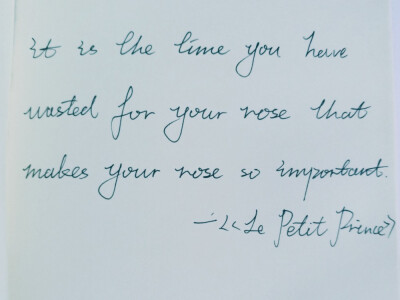 it is the time you have
wasted for your rose that
makes your rose so important.
—《Le Petit Prince》